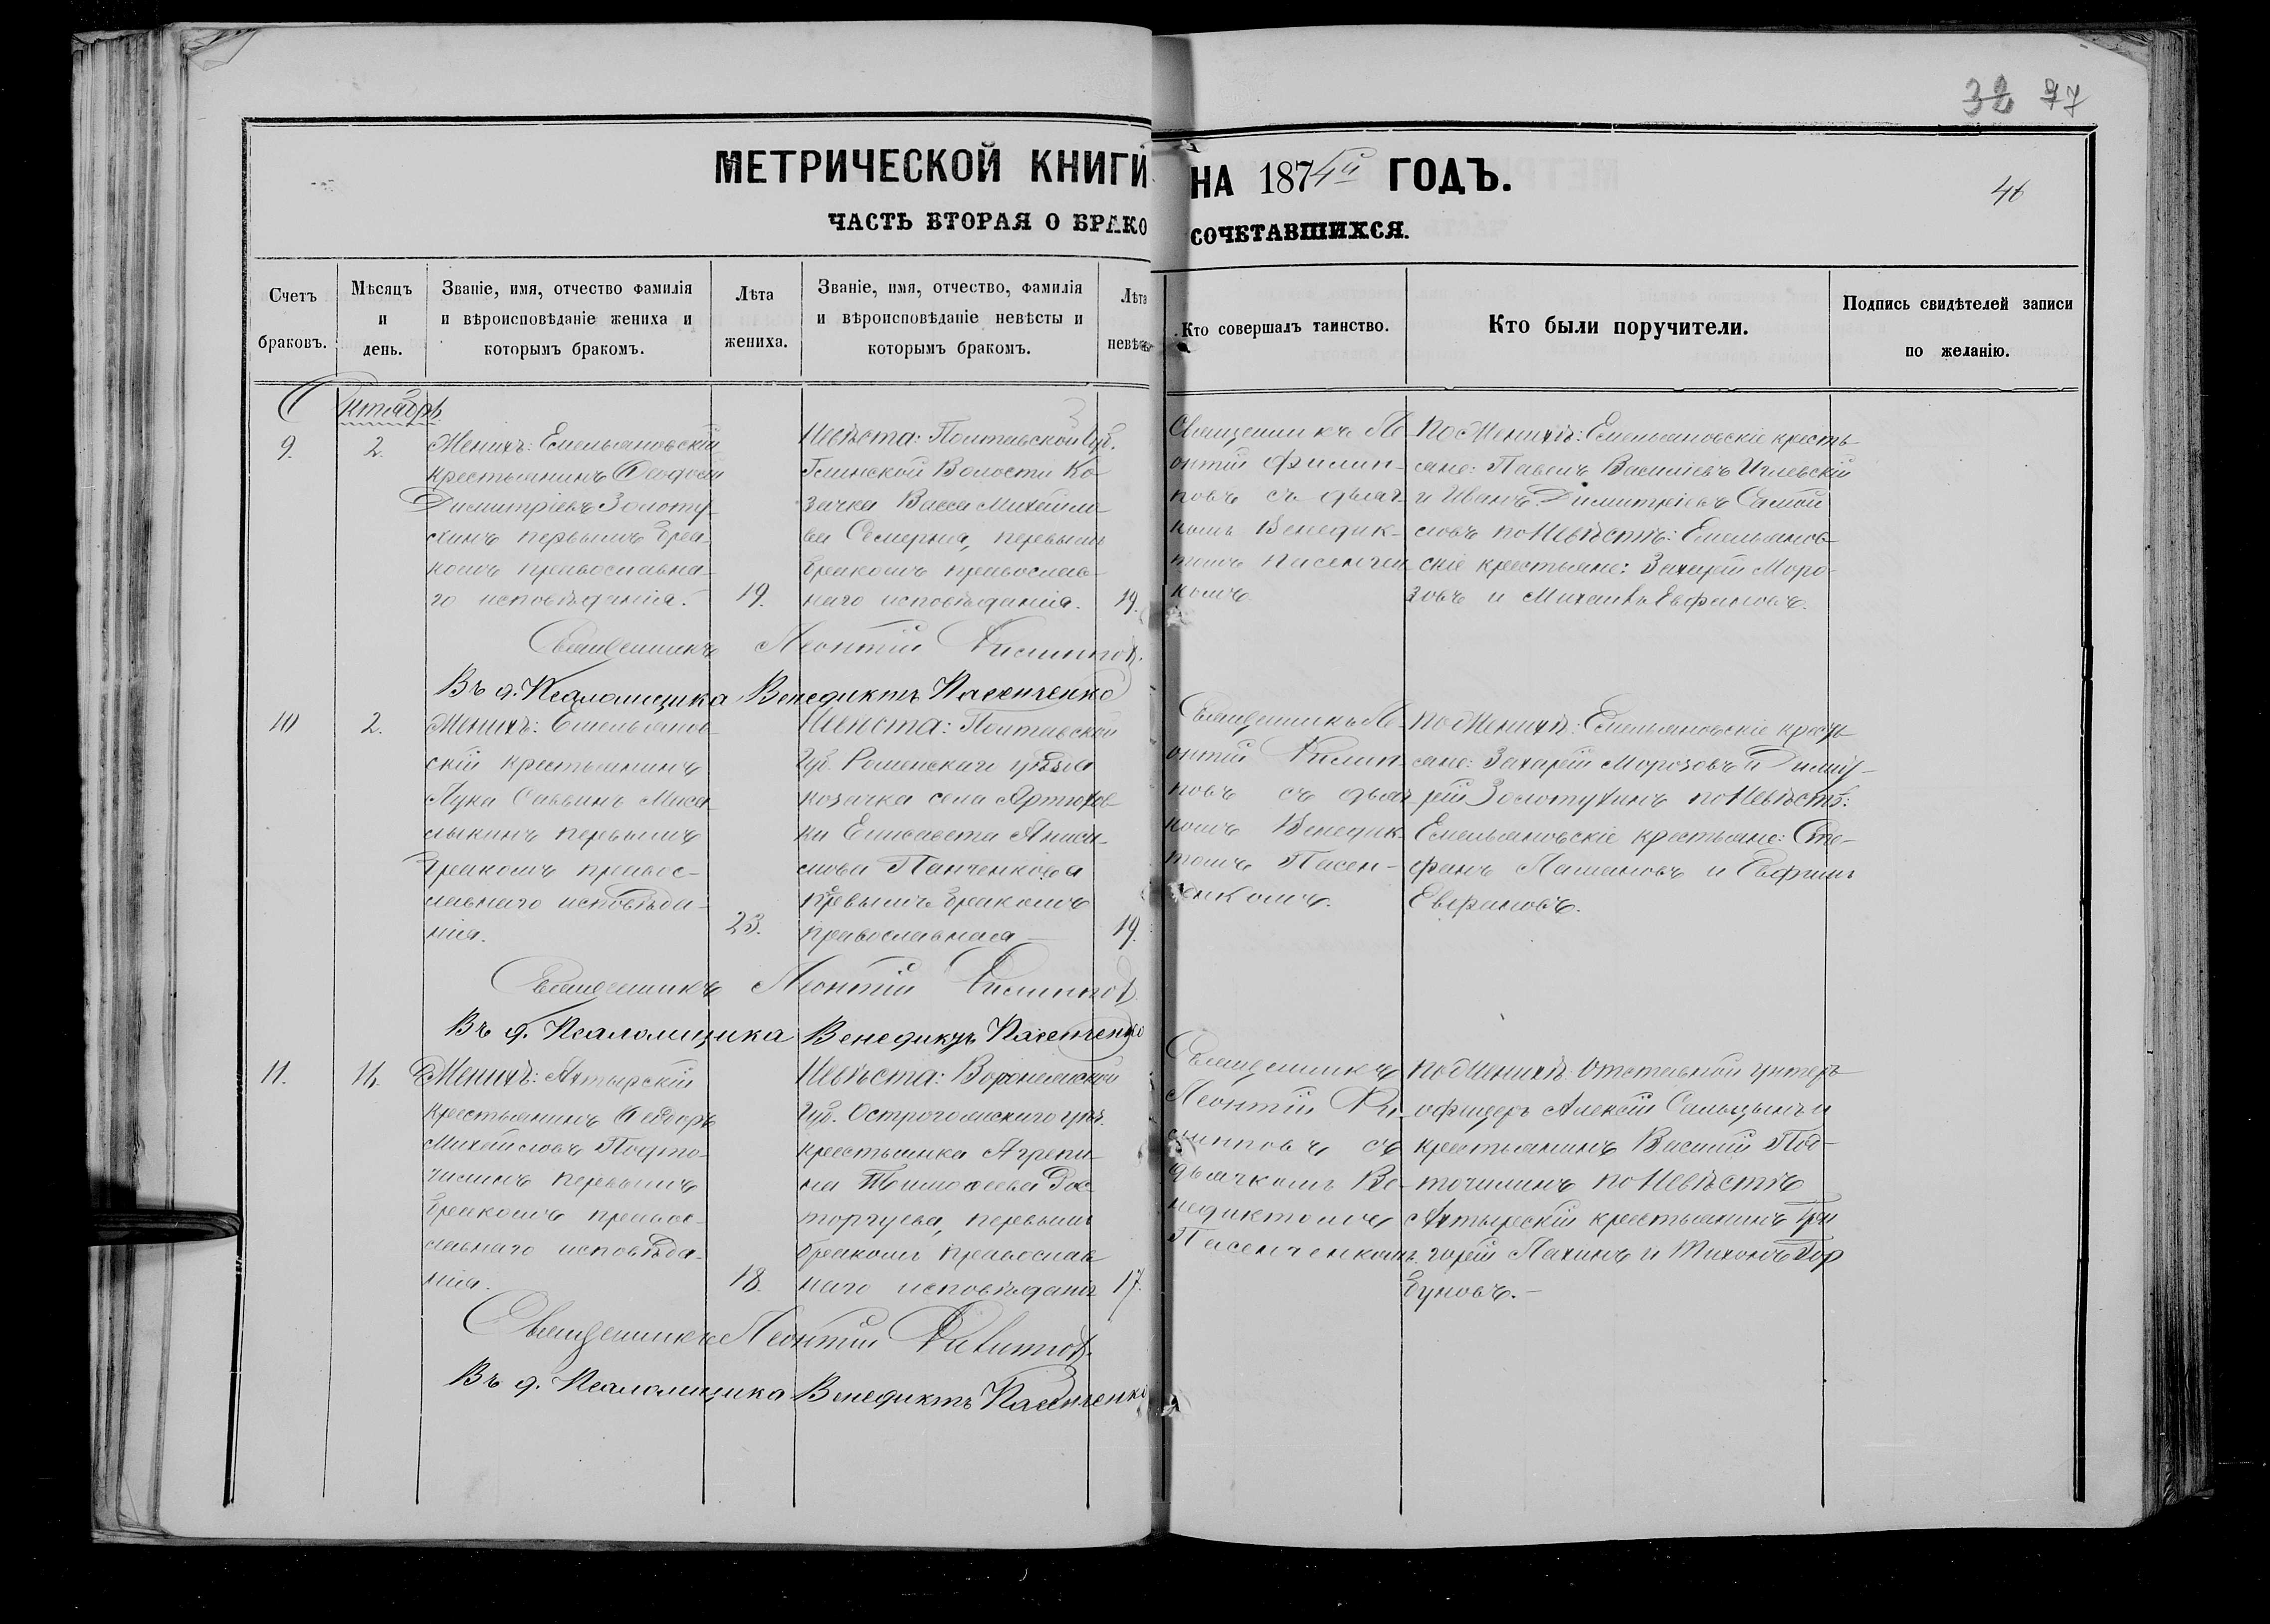 32 77
МЕТРИЧЕСКОЙ КНИГИ НА 1874й ГОДЪ.
46
ЧАСТЬ ВТОРАЯ О БРАКОСОЧЕТАВШИХСЯ.
Счетъ браковъ.
Мѣсяцъ и день.
Званіе, имя, отчество фамилія
и вѣроисповѣданіе жениха и
которымъ бракомъ.
Лѣта
жениха.
Званіе, имя, отчество, фамилія
и вѣроисповѣданіе невѣсты и
которымъ бракомъ.
Лѣта
невѣс
Кто совершалъ таинство.
Кто были поручители.
Подпись свидѣтелей записи
по желанію.
Октябрь
9.
2.
Женихъ: Емельяновскій
крестьянинъ Феодосій
Димитріевъ Золоту-
хинъ первымъ бра-
комъ православна-
го исповѣданія.
19.
Невѣста: Полтавской Губ.
Глинской Волости Ко-
зачка Васса Михайло-
ва Семерня, первымъ
бракомъ православ-
наго исповѣданія.
19.
Священникъ Ле-
онтій Филип-
повъ съ дьяч-
комъ Венедик-
томъ Пасенчен
комъ
По Женихѣ: Емельяновскіе кресть-
яне: Павелъ Василіевъ
и Иванъ Димитріевъ Самой
ловъ по Невѣстѣ: Емельянов-
скіе крестьяне: Захарій Моро-
зовъ и Михаилъ Евфановъ.
Священникъ Леонтій Филиппов.
Въ д. Псаломщика Венедиктъ Пасенченко
10
2.
Женихъ: Емельянов-
скій крестьянинъ
Лука Саввинъ Маса-
лыкинъ первымъ
бракомъ правос-
лавнаго исповѣда-
нія.
23.
Невѣста: Полтавской
Губ. Роменскаго уѣзда
козачка села Артюхов-
ки Елисавета Аниси-
мова Панченкова
первымъ бракомъ
православная
19.
Священникъ Ле-
онтій Филип-
повъ съ дьяч
комъ Венедик-
томъ Пасен-
ченкомъ.
По Женихѣ: Емельяновскіе кресть-
яне: Захарій Морозовъ и Димит-
рій Золотухинъ по Невѣстѣ:
Емельяновскіе крестьяне: Сте-
фанъ Лашановъ и Евфимъ
Евфановъ.
Священникъ Леонтій Филиппов.
Въ д. Псаломщика Венедиктъ Пасенченко
11.
Женихъ: Ахтырскій
крестьянинъ Феодоръ
Михайловъ Подто-
чилинъ первымъ
бракомъ правос-
лавнаго исповѣда-
нія.
18.
Невѣста: Воронежской
Губ. Острогожскаго уѣз.
крестьянка Агрепи-
на Тимофеева Рос
торгуева, первымъ
бракомъ православ
наго исповѣданія
17.
Священникъ
Леонтій Фи-
липповъ съ
дьячкомъ Ве-
недиктомъ
Пасенченкомъ.
По Женихѣ: Отставной унтеръ-
офицеръ Алексій Сальцынъ и
крестьянинъ Василій Под-
точилинъ по Невѣстѣ
Ахтырскій крестьянинъ Гри
горій Пахинъ и Тихонъ Гор
буновъ.-
Священникъ Леонтій Филиппов.
Въ д. Псаломщика Венедиктъ Пасенченко